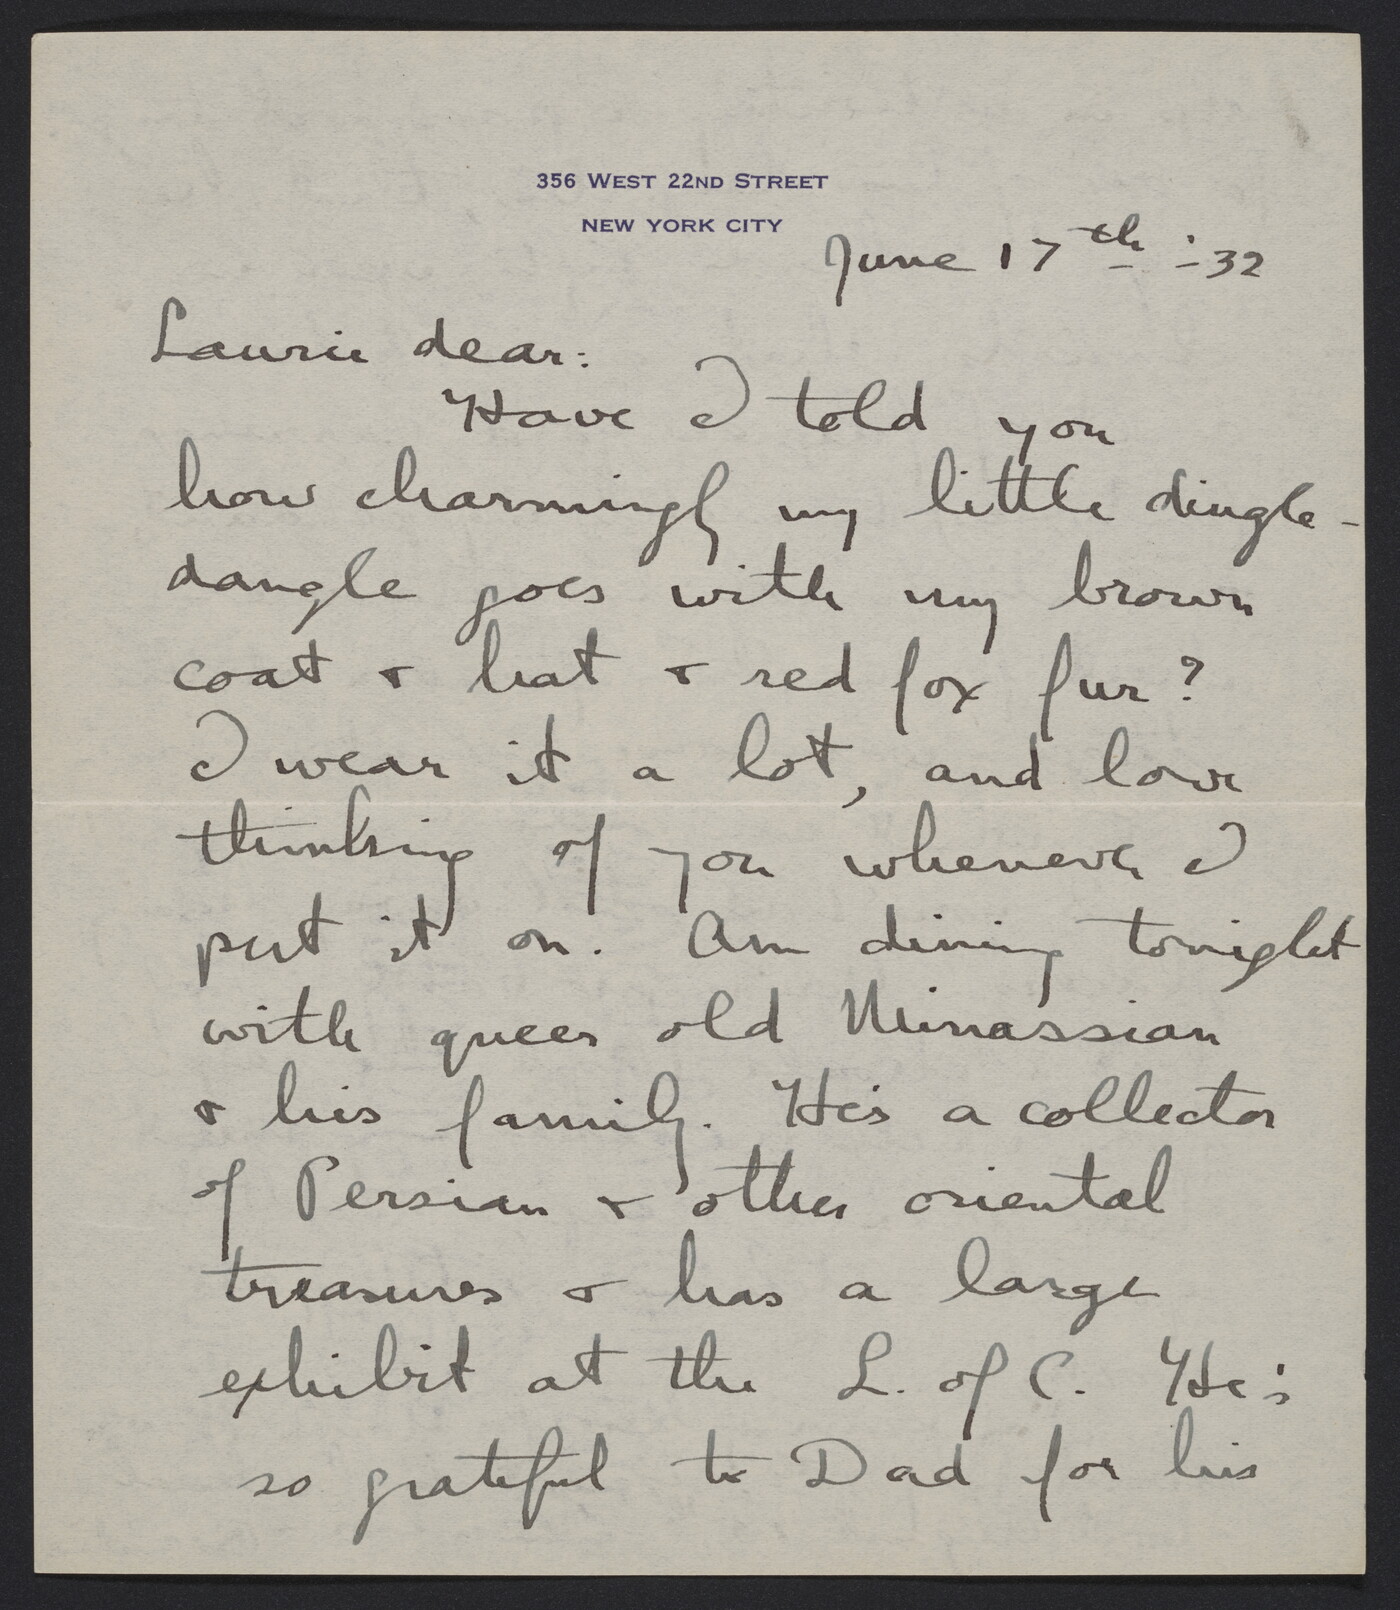 356 WEST 22ND STREET
NEW YORK CITY
June 17th - '32
Laurie dear:
Have I told you
how charmingly my little dingle-
dangle goes with my brown
coat & hat & red fox fur?
I wear it a lot, and love
thinking of you whenever I
put it on. Am dining tonight
with queer old Minassian
& his family. He's a collector
of Persian & other oriental
treasures & has a large
exhibit at the L. of C. He's
so grateful to Dad for his